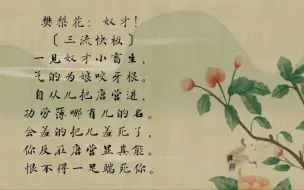 樊梨花：奴才！
〔三流快板〕
一见奴才小畜生，
气的为娘咬牙根。
自从儿把唐营进，
功劳薄哪有儿的名。
会羞的把儿羞死了，
你反在唐营显其能。
恨不得一足踹死你。